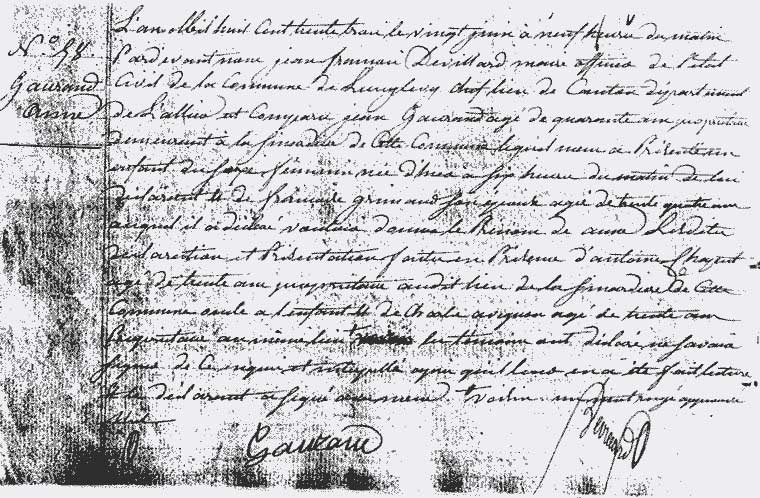 L'an Mil huit Cent trente trois le vingt juin à neuf heures du matin
N° 58. Pardevant nous jean francois Devillard maire officier de l'etat
Gaurand Civil de la Commune de Lurcy Levy chef lieu de Canton département
Anne de L'allier est Comparu jean Gaurand agé de quarante ans propriétaire
demeurant à la Simardiere de Cette Commune lequel nous a Présenté un
enfant du sexe féminin née d'hier à six heures du matin de lui
déclarant et de francoise grimaud son epouse agée de trente quatre ans
auquel il a déclaré vouloir donner le Prenom de anne Lesdites
déclaration et Présentation faites en Présence d'antoine Chaput
agé de trente ans propriétaire audit lieu de la Simardiere de Cette
Commune oncle a l'enfant et de Charle avignon agé de trente ans
Propriétaire au même lieu les temoins ont déclaré ne savoir
signer de Ce requis et interpellé apres qu'il leur en a été fait lecture
et le déclarant a signé avec nous. voisin un mot rayé approuvé
Gaurand